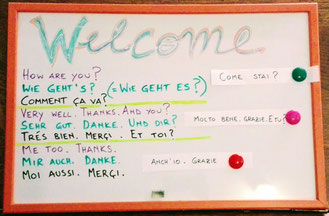 Welcome
HOW ARE YOU?
WIE GEHT'S? (=WIE GEHT ES?)
COMMENT ÇA VA?
COME STAI?
VERY WELL. THANKS. AND YOU?
SEHR GUT. DANKE. UND DIR?
TRÉS BIEN. MERÇI. ET TOI?
MOLTO BENE. GRAZIE. E TU?
ME TOO. THANKS.
MIR AUCH. DANKE.
MOI AUSSI. MERÇI.
ANCH'IO. GRAZIE